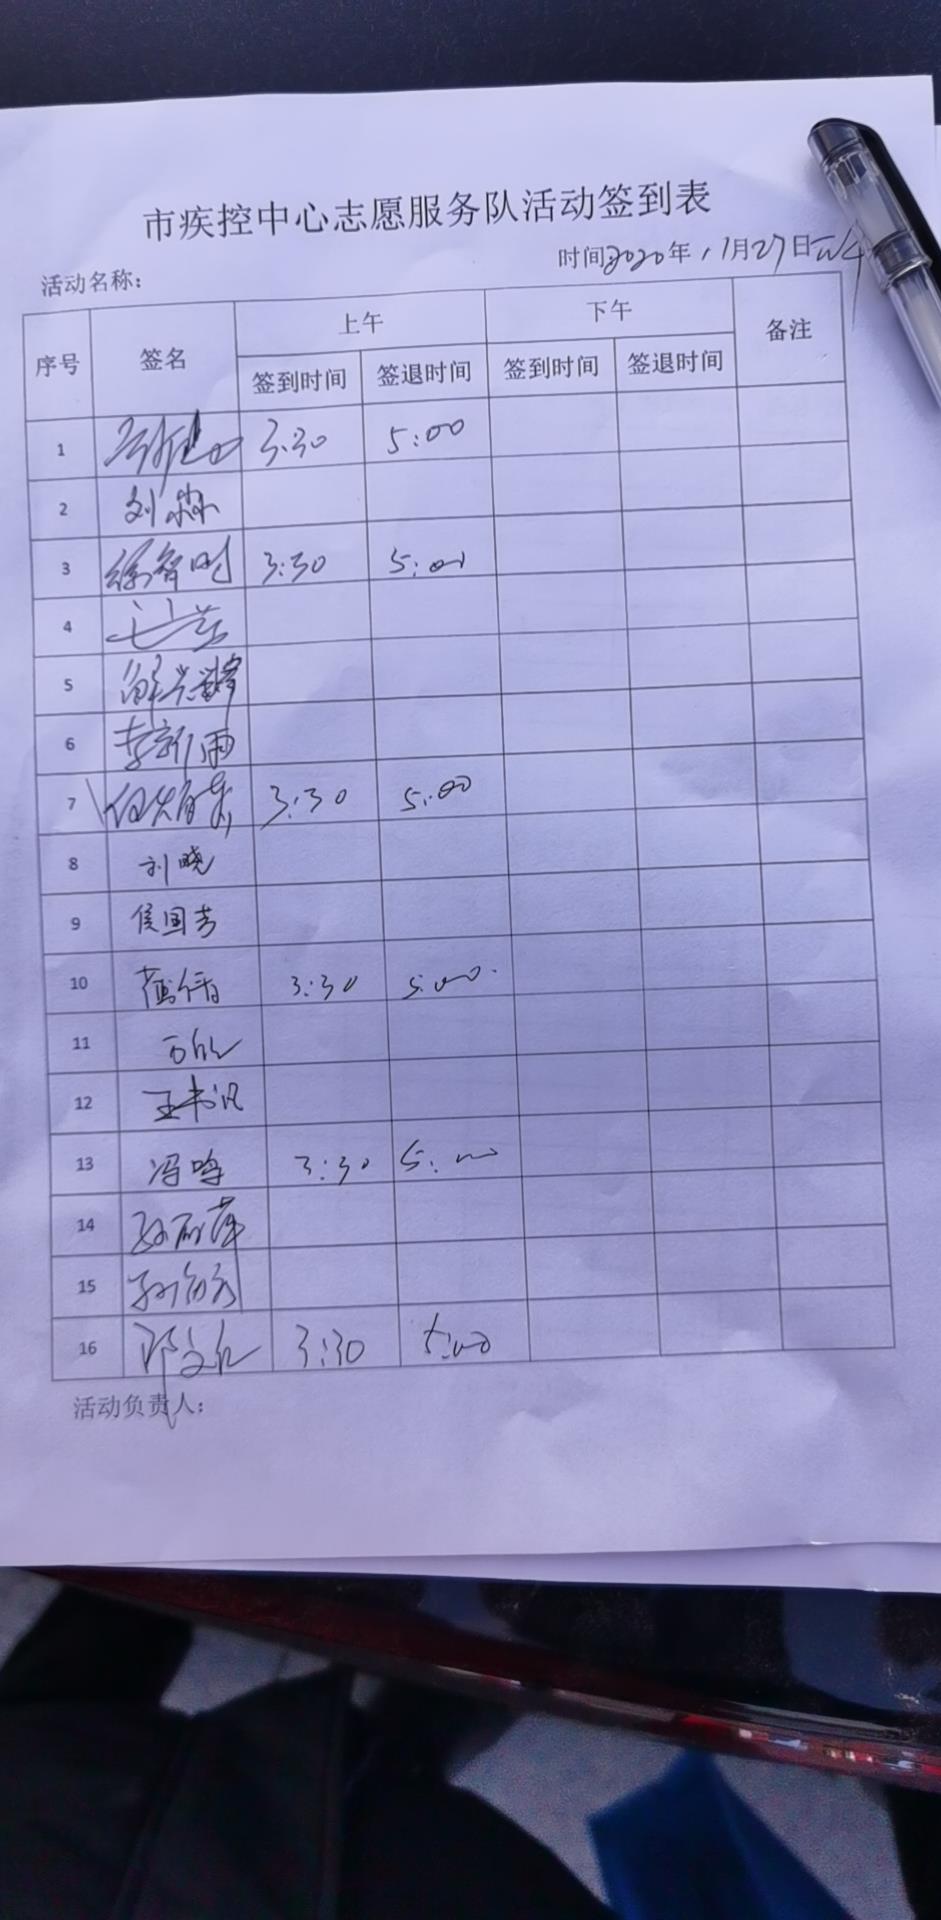 市疾控中心志愿服务队活动签到表
时间2020年11月27日下午
活动名称：
序号 签名 上午 下午 备注
签到时间 签退时间 签到时间 签退时间
1 3:30 5:00
2 刘淼
3 徐智明 3:30 5:00
4
5 解兴峰
6 李新雨
7 3:30 5:00
8 刘晓
9 侯国芳
10 3:30 5:00
11
12 王书汎
13 冯鸣 3:30 5:00
14 孙丽萍
15
16 邓文仁 3:30 5:00
活动负责人：